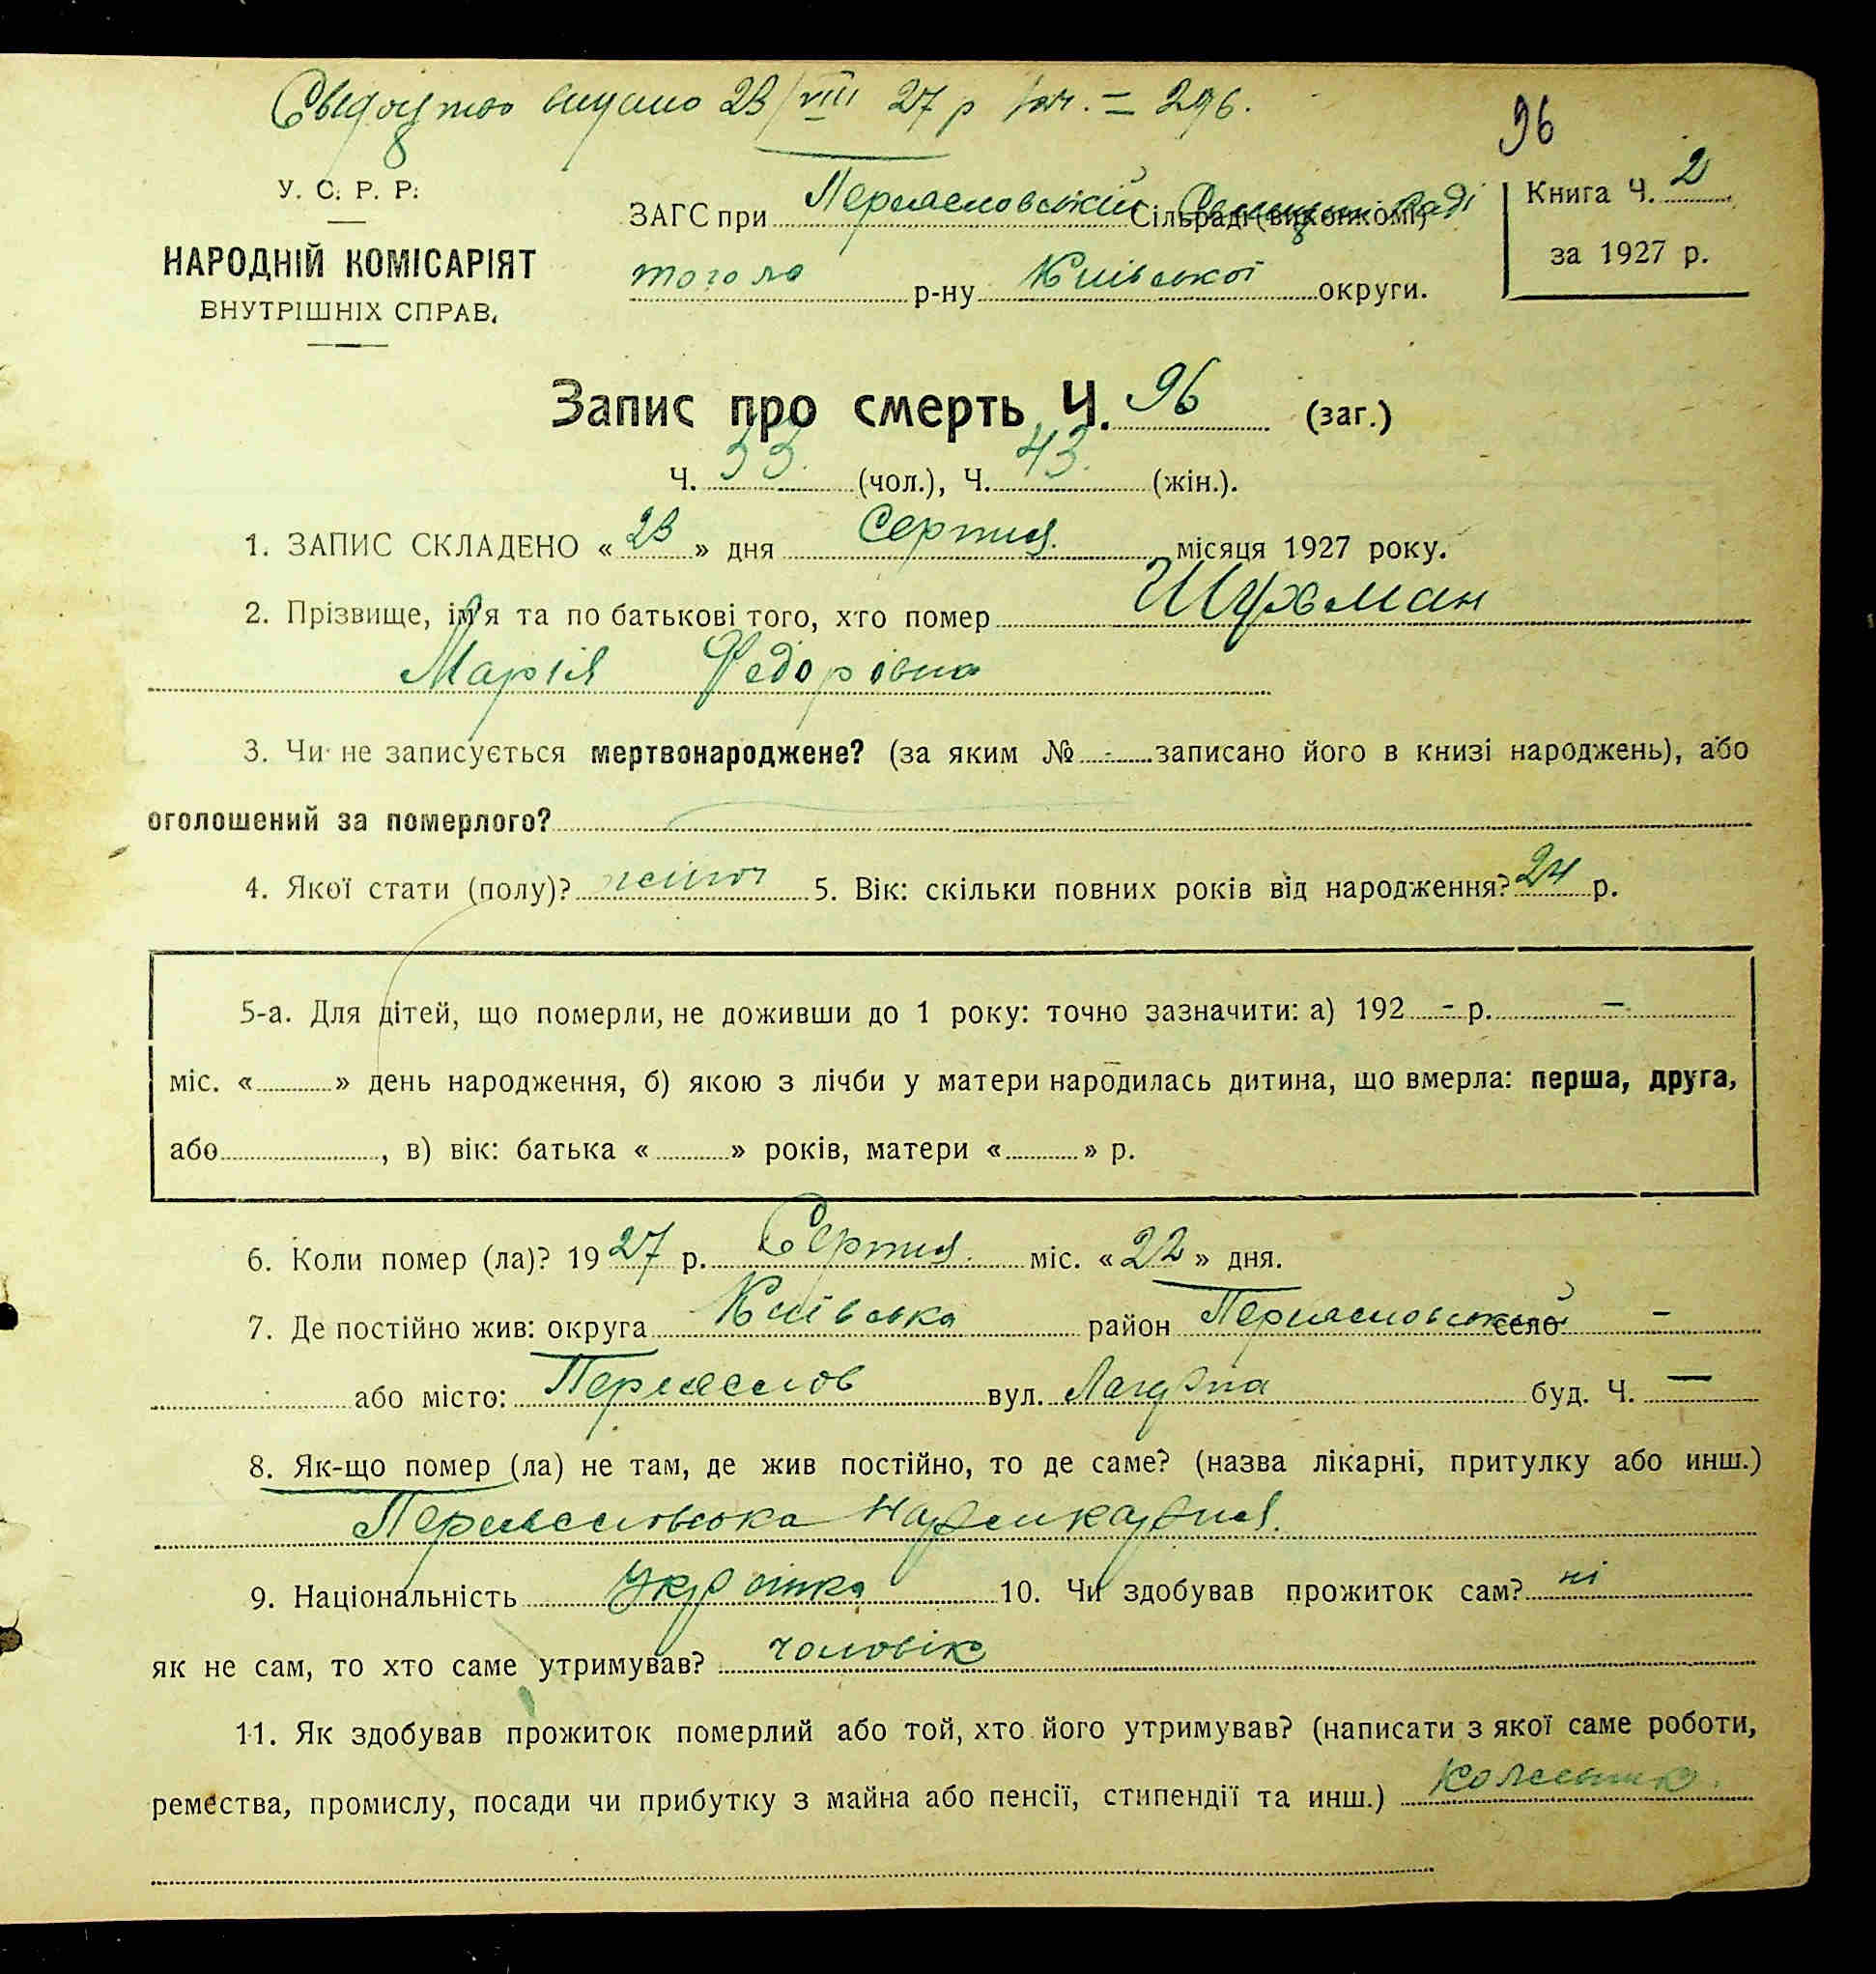 Свідоцтво видано 23/VIII 27 р. № 296.
96
У. С. Р. Р.
НАРОДНІЙ КОМІСАРІЯТ
ВНУТРІШНІХ СПРАВ.
ЗАГС при Переяславській Сільраді (виконкомі)
того ж р-ну Київської округи.
Книга Ч. 2
за 1927 р.
Запис про смерть Ч. 96 (заг.)
Ч. 53. (чол.), Ч. 43. (жін.).
1. ЗАПИС СКЛАДЕНО « 23 » дня Серпня місяця 1927 року.
2. Прізвище, ім'я та по батькові того, хто помер Шухман
Марія Федорівна
3. Чи не записується мертвонароджене? (за яким № - записано його в книзі народжень), або
оголошений за померлого?
4. Якої стати (полу)? жіноч 5. Вік: скільки повних років від народження? 24 р.
5-а. Для дітей, що померли, не доживши до 1 року: точно зазначити: а) 192 - р. -
міс. « » день народження, б) якою з лічби у матери народилась дитина, що вмерла: перша, друга,
або , в) вік: батька « » років, матери « » р.
6. Коли помер (ла)? 1927 р. Серпня міс. « 22 » дня.
7. Де постійно жив: округа Київська район Переяславський село -
або місто: Переяслов вул. буд. Ч. —
8. Як-що помер (ла) не там, де жив постійно, то де саме? (назва лікарні, притулку або инш.)
Переяславська
9. Національність Українка 10. Чи здобував прожиток сам? ні
як не сам, то хто саме утримував? чоловік
11. Як здобував прожиток померлий або той, хто його утримував? (написати з якої саме роботи,
ремества, промислу, посади чи прибутку з майна або пенсії, стипендії та инш.)